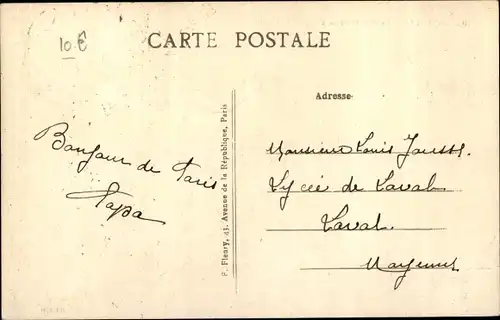 10 €
CARTE POSTALE
Adresse
Bonjour de Paris
Papa
P. Fleury, 43, Avenue de la République, Paris
Monsieur Louis
Lycée de Laval
Laval
Mayenne